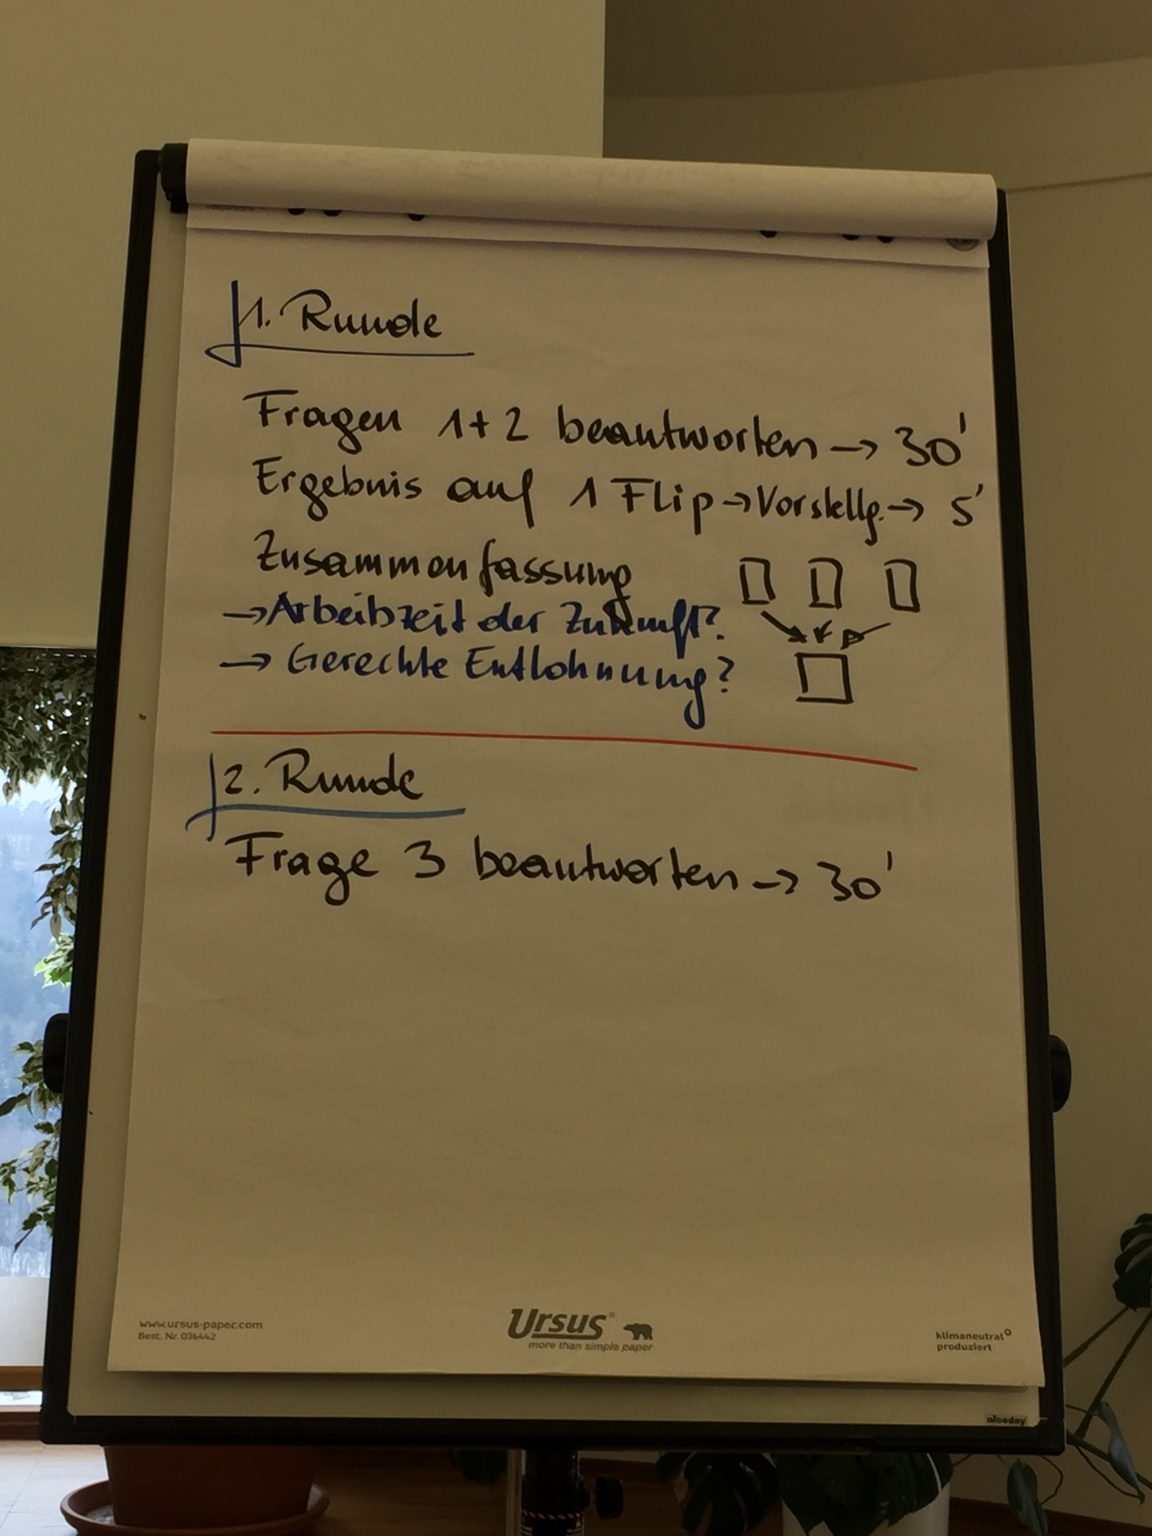 1. Runde
Fragen 1+2 beantworten → 30'
Ergebnis auf 1 Flip → Vorstellg. → 5'
Zusammenfassung
→ Arbeitszeit der Zukunft?
→ Gerechte Entlohnung?
2. Runde
Frage 3 beantworten → 30'
www.ursus-paper.com
Best. Nr. 036442
Ursus®
more than simple paper
klimaneutral
produziert
niceday